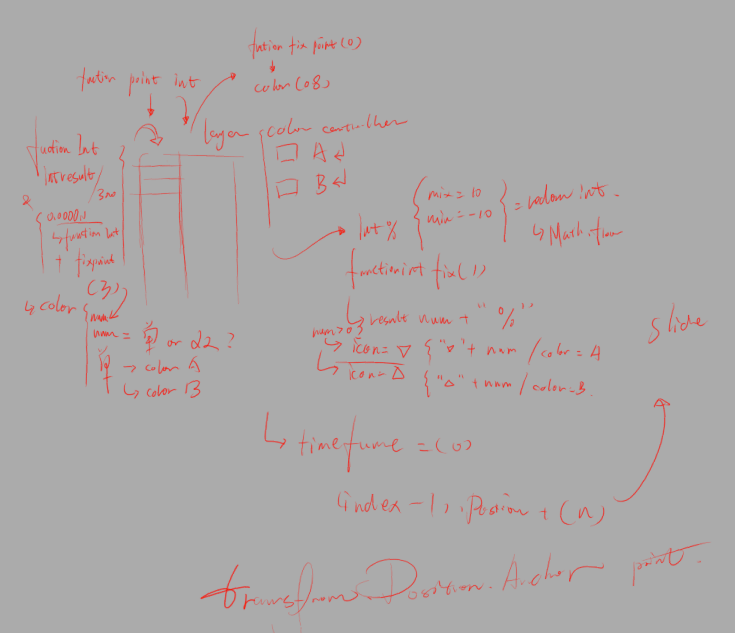 fuction fix point (0)
color (08)
fuction point int
layer
color contrller
A ↲
B ↲
fuction Int
Int result /
0.0000n
↳ function Int
+ fixpoint
(3)
↳ color
num
num = 单 or 22 ?
单 → color A
↳ color B
Int %
mix = 10
min = -10
= redom int.
↳ Math.
function int fix (1)
↳ result num + "%"
num>0
icon = ▽ { "▽" + num / color = A
↳ icon = △ { "△" + num / color = B
slide
↳ time fume = (0)
(index - 1), Postion + (n)
transform. Position. Anchor point.